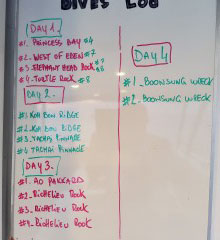 DIVES LOG
DAY 1
#1. PRINCESS BAY #4
#2. WEST OF EDEN #7
#3. ELEPHANT HEAD ROCK
#4. TURTLE ROCK #8
DAY 2.
#1 KOH BON RIDGE
#2 KOH BON RIDGE
#3. TACHAI PINNACLE
#4 TACHAI PINNACLE
DAY 3.
#1. AO PAKKARD
#2. RICHELIEU ROCK
#3. RICHELIEU ROCK
#4. RICHELIEU ROCK
DAY 4
#1. BOONSUNG WRECK
#2. BOONSUNG WRECK